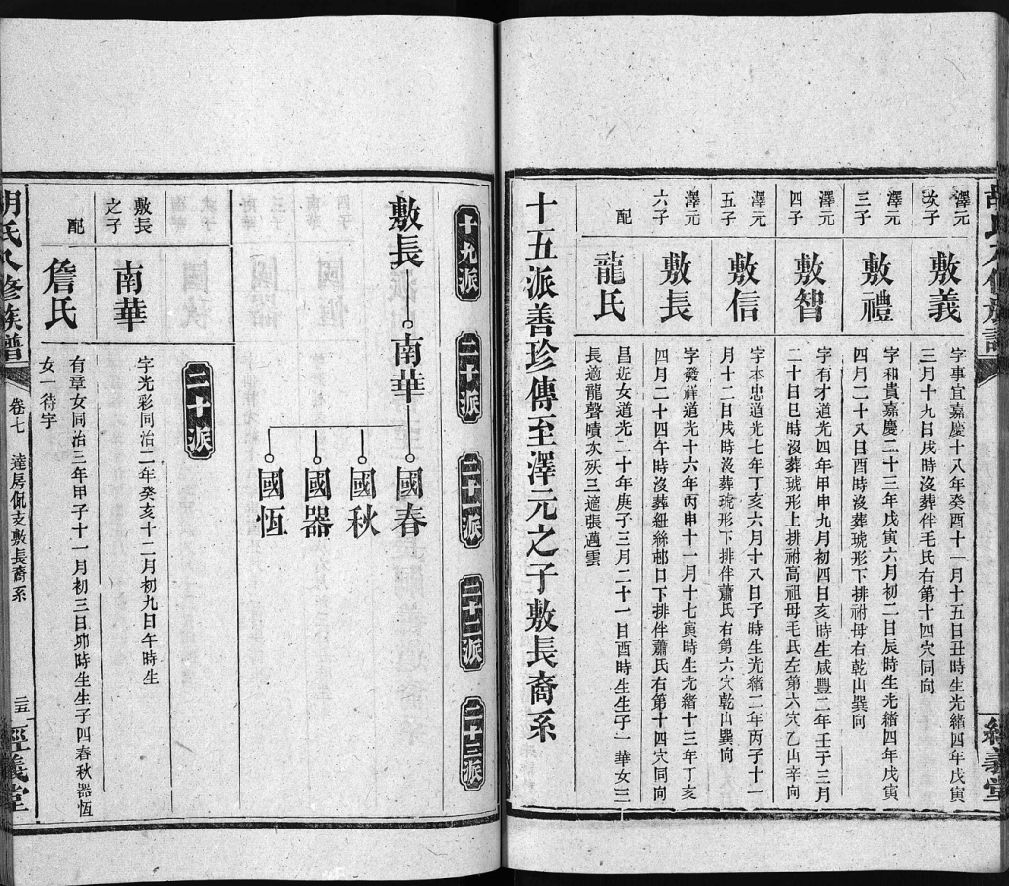 澤元
次子
敷義
字事宜嘉慶十八年癸酉十一月十五日丑時生光緒四年戊寅
三月十九日戌時沒葬伴毛氏右第十四穴同向
澤元
三子
敷禮
字和貴嘉慶二十三年戊寅六月初二日辰時生光緒四年戊寅
四月二十八日酉時沒葬琥形下排祔母右乾山巽向
澤元
四子
敷智
字有才道光四年甲申九月初四日亥時生咸豐二年壬子三月
二十日巳時沒葬琥形上排祔高祖母毛氏左第六穴乙山辛向
澤元
五子
敷信
字本忠道光七年丁亥六月十八日子時生光緒二年丙子十一
月十二日戌時沒葬琥形下排伴蕭氏右第六穴乾山巽向
澤元
六子
敷長
字發祥道光十六年丙申十一月十七寅時生光緒十三年丁亥
四月二十四午時沒葬紐絲邨日下排伴蕭氏右第十四穴同向
配
龍氏
昌近女道光二十年庚子三月二十一日酉時生生子一華女三
長適龍聲曉次殀三適張邁雲
十五派善珍傳至澤元之子敷長裔系
經義堂
十九派
二十派
二十一派
二十二派
二十三派
敷長
南華
國春
國秋
國器
國恆
二十派
敷長
之子
南華
字光彩同治二年癸亥十二月初九日午時生
配
詹氏
有章女同治三年甲子十一月初三日卯時生生子四春秋器恆
女一待字
胡氏八修族譜
卷七
達房侃支敷長裔系
經義堂